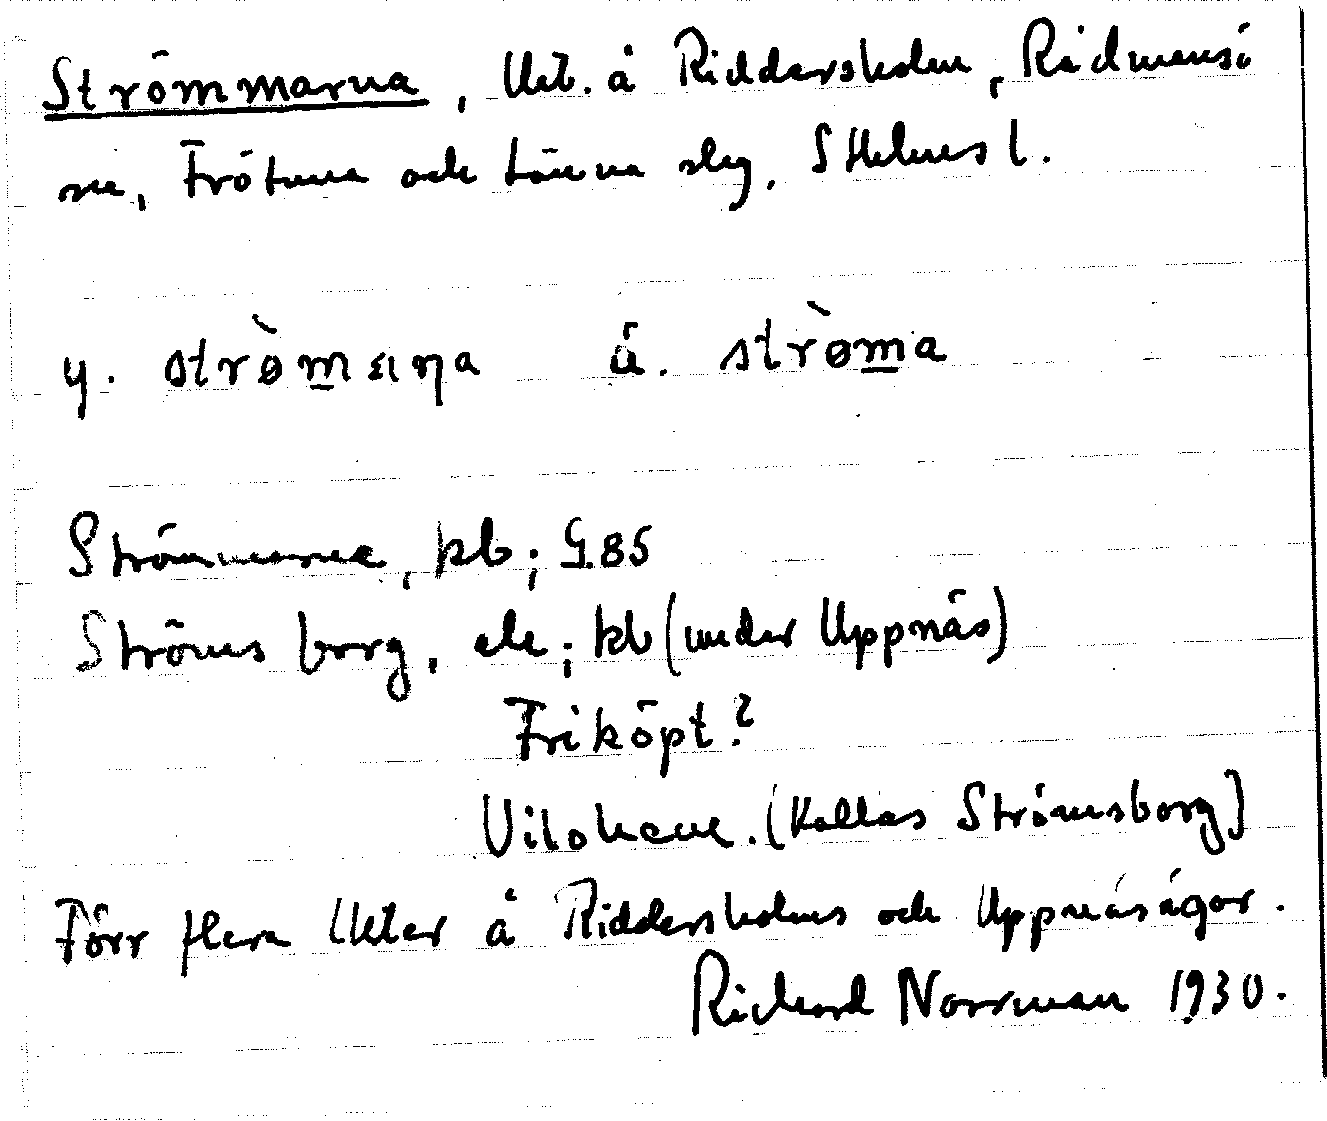 Strömmarna, lht. å Riddersholm, Rådmansö
sn, Frötuna och Länna slg, Sthlms l.
y. strø̀mana ä. strø̀ma
Strömmarna, kb; G.85
Strömsborg, ek; kb (under Uppnäs)
Friköpt?
Vilohem. (Kallas Strömsborg)
Förr flera lhter å Riddersholms och Uppnäs ägor.
Richard Norrman 1930.